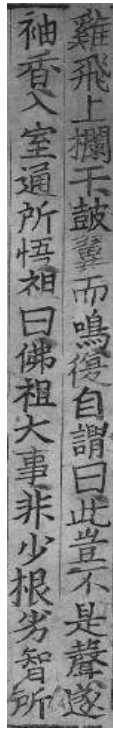 雞飛上攔干鼓翼而鳴復自謂曰此豈不是聲遂
袖香入室通所悟祖曰佛祖大事非少根劣智所